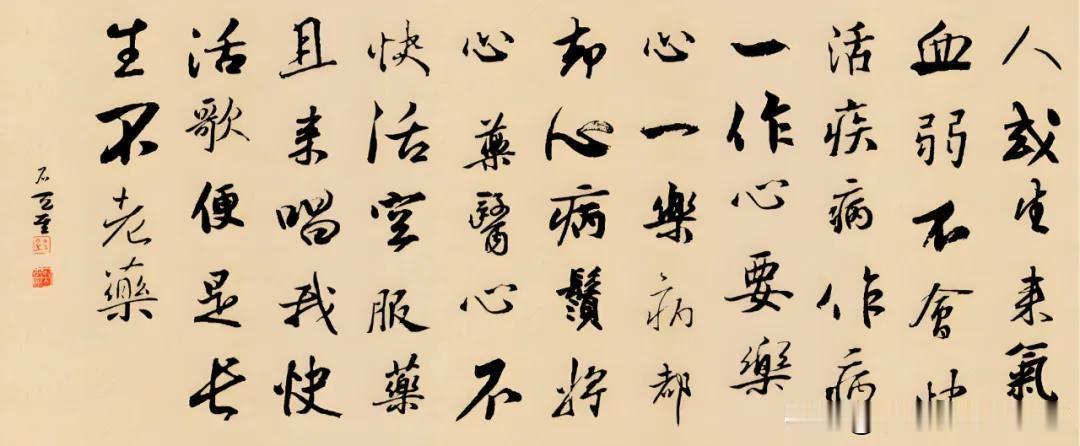 人或生来氣
血弱不會快
活疾病作病
一作心要樂
心一樂病都
却心病鬚将
心藥醫心不
快活空服藥
且来唱我快
活歌便是长
生不老藥
石